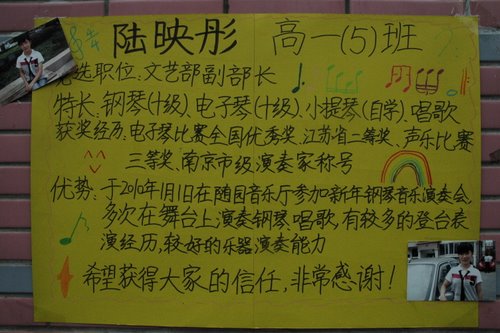 陆映彤 高一(5)班
竞选职位:文艺部副部长
特长、钢琴(十级)、电子琴(十级)、小提琴(自学)、唱歌
获奖经历、电子琴比赛全国优秀奖、江苏省二等奖、声乐比赛
三等奖、南京市级演奏家称号
优势:于2010年1月1日在随园音乐厅参加新年钢琴音乐演奏会、
多次在舞台上演奏钢琴、唱歌,有较多的登台表
演经历,较好的乐器演奏能力
希望获得大家的信任,非常感谢!